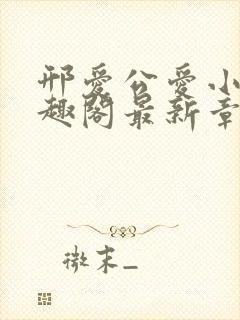 邢爱公爱小
趣阁最新章
微末_